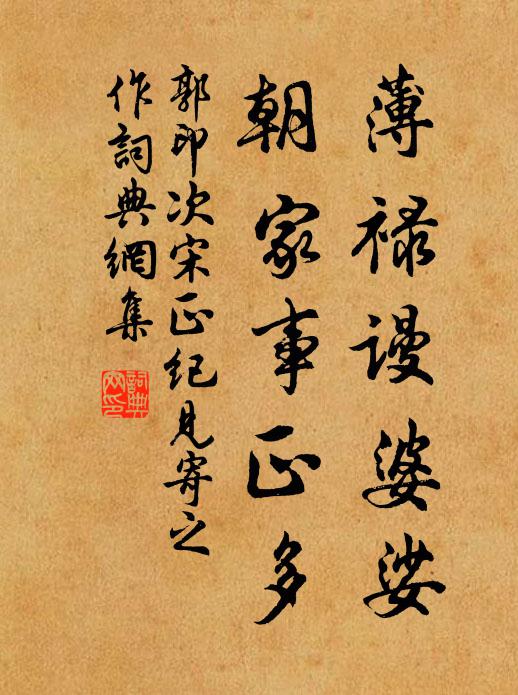 薄祿謾婆娑
朝家事正多
郭印次宋正紀見寄之
作詞典網集
詞典網印